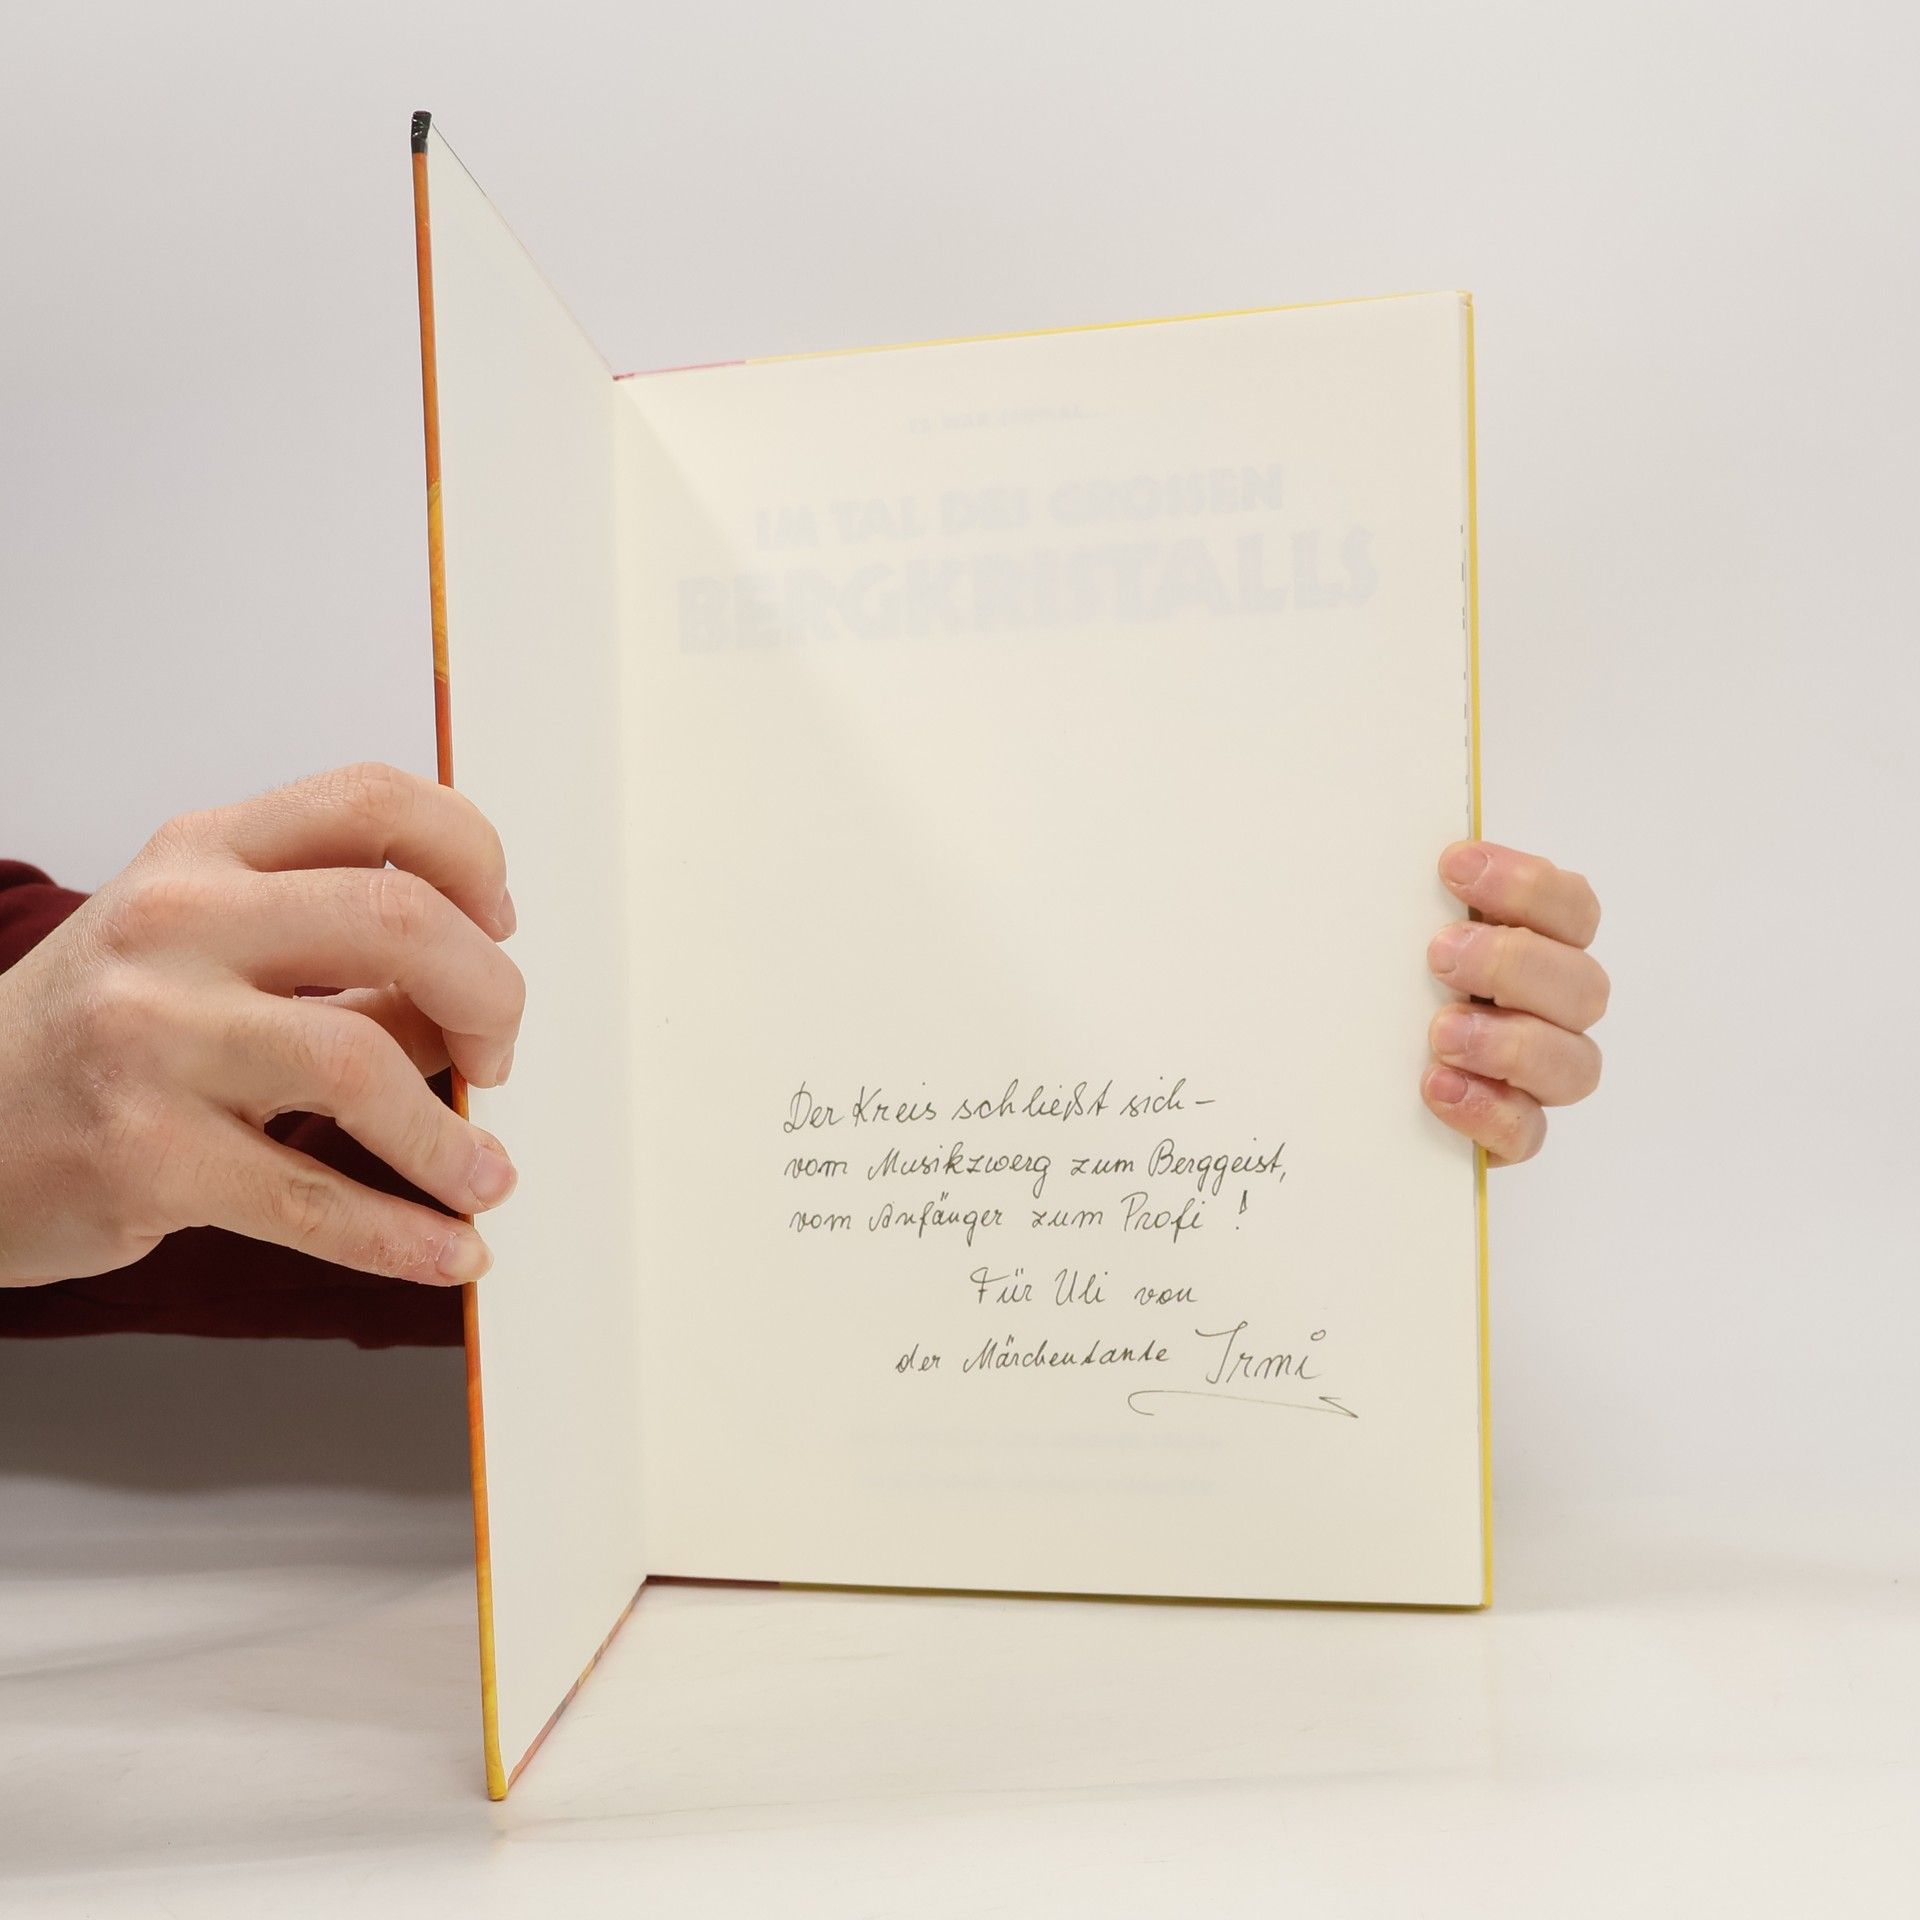 ES WAR EINMAL...
IM TAL DES GROSSEN
BERGKRISTALLS
Der Kreis schließt sich –
vom Musikzwerg zum Berggeist,
vom Anfänger zum Profi !
Für Uli von
der Märchentante Irmi